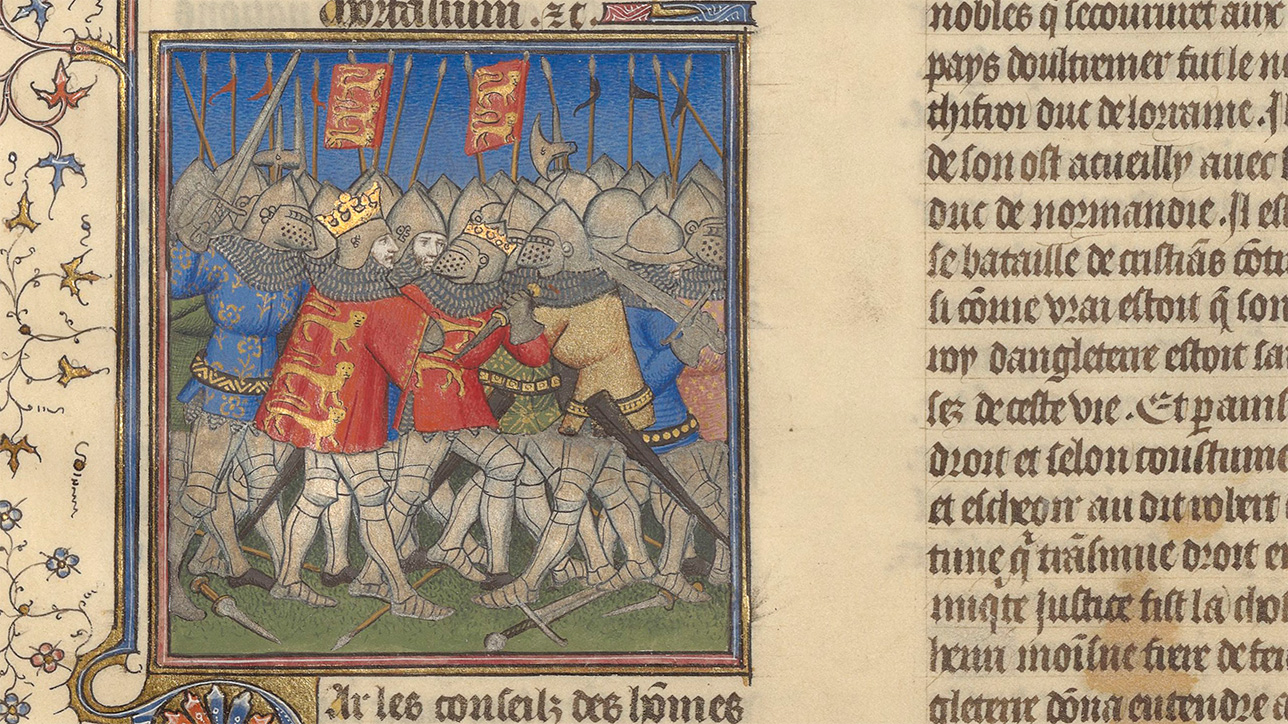 mortalium .⁊c.
Par les conseilz des hõmes
nobles q̃ secoururẽt aux
pays doultremer fut le no
thifroi duc de lorraine. Il
de son ost acueilly avec
duc de normandie. Il est
se bataille de cristiãs cõtr
si cõme vrai estoit q̃ son
roy dangleterre estoit
sez de ceste vie. Et p ainsi
droit et selon coustume
et escheoir au dit robert
tune q̃ trãsmue droit en
iustice fist la cho
henri moĩsne frere de
gleterre dõna entendre